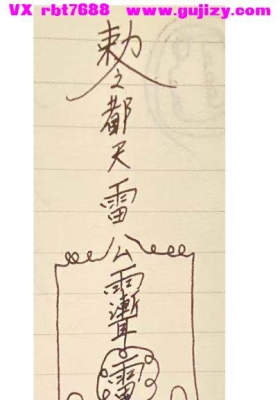 VX rbt7688 www.gujizy.com
敕
之
都
天
雷
公